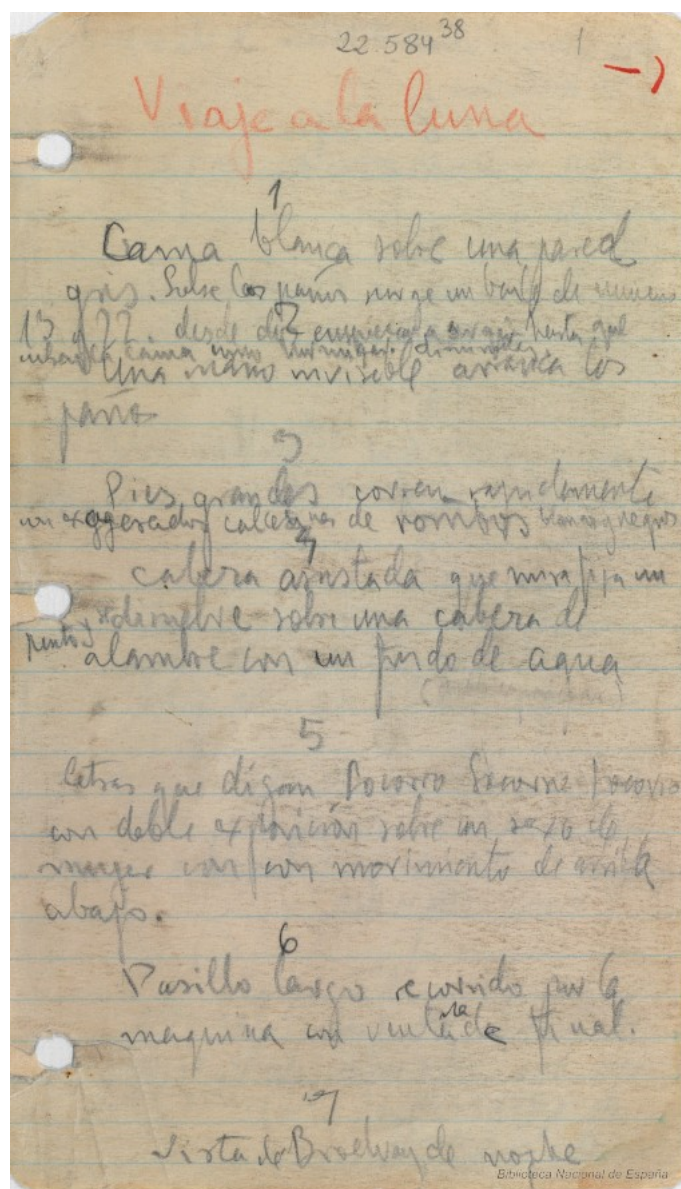 22.584 38
1
Viaje a la luna
1
Cama blanca sobre una pared
gris. Sobre los paños surge un baile de numeros
13 y 22. desde dos empiezan a surgir hasta que
cubran la cama como hormigas diminutas.
2
Una mano invisible arranca los
paños
3
Pies grandes corren rapidamente
con exagerados calcetines de rombos blancos y negros
4
cabeza asustada que mira fija un
punto y se disuelve sobre una cabeza de
alambre con un fondo de agua
5
Letras que digan Socorro Socorro Socorro
con doble exposición sobre un sexo de
mujer con con movimiento de arriba
abajo.
6
Pasillo largo recorrido por la
maquina con ventana de final.
7
Vista de Broelway de noche
Biblioteca Nacional de España